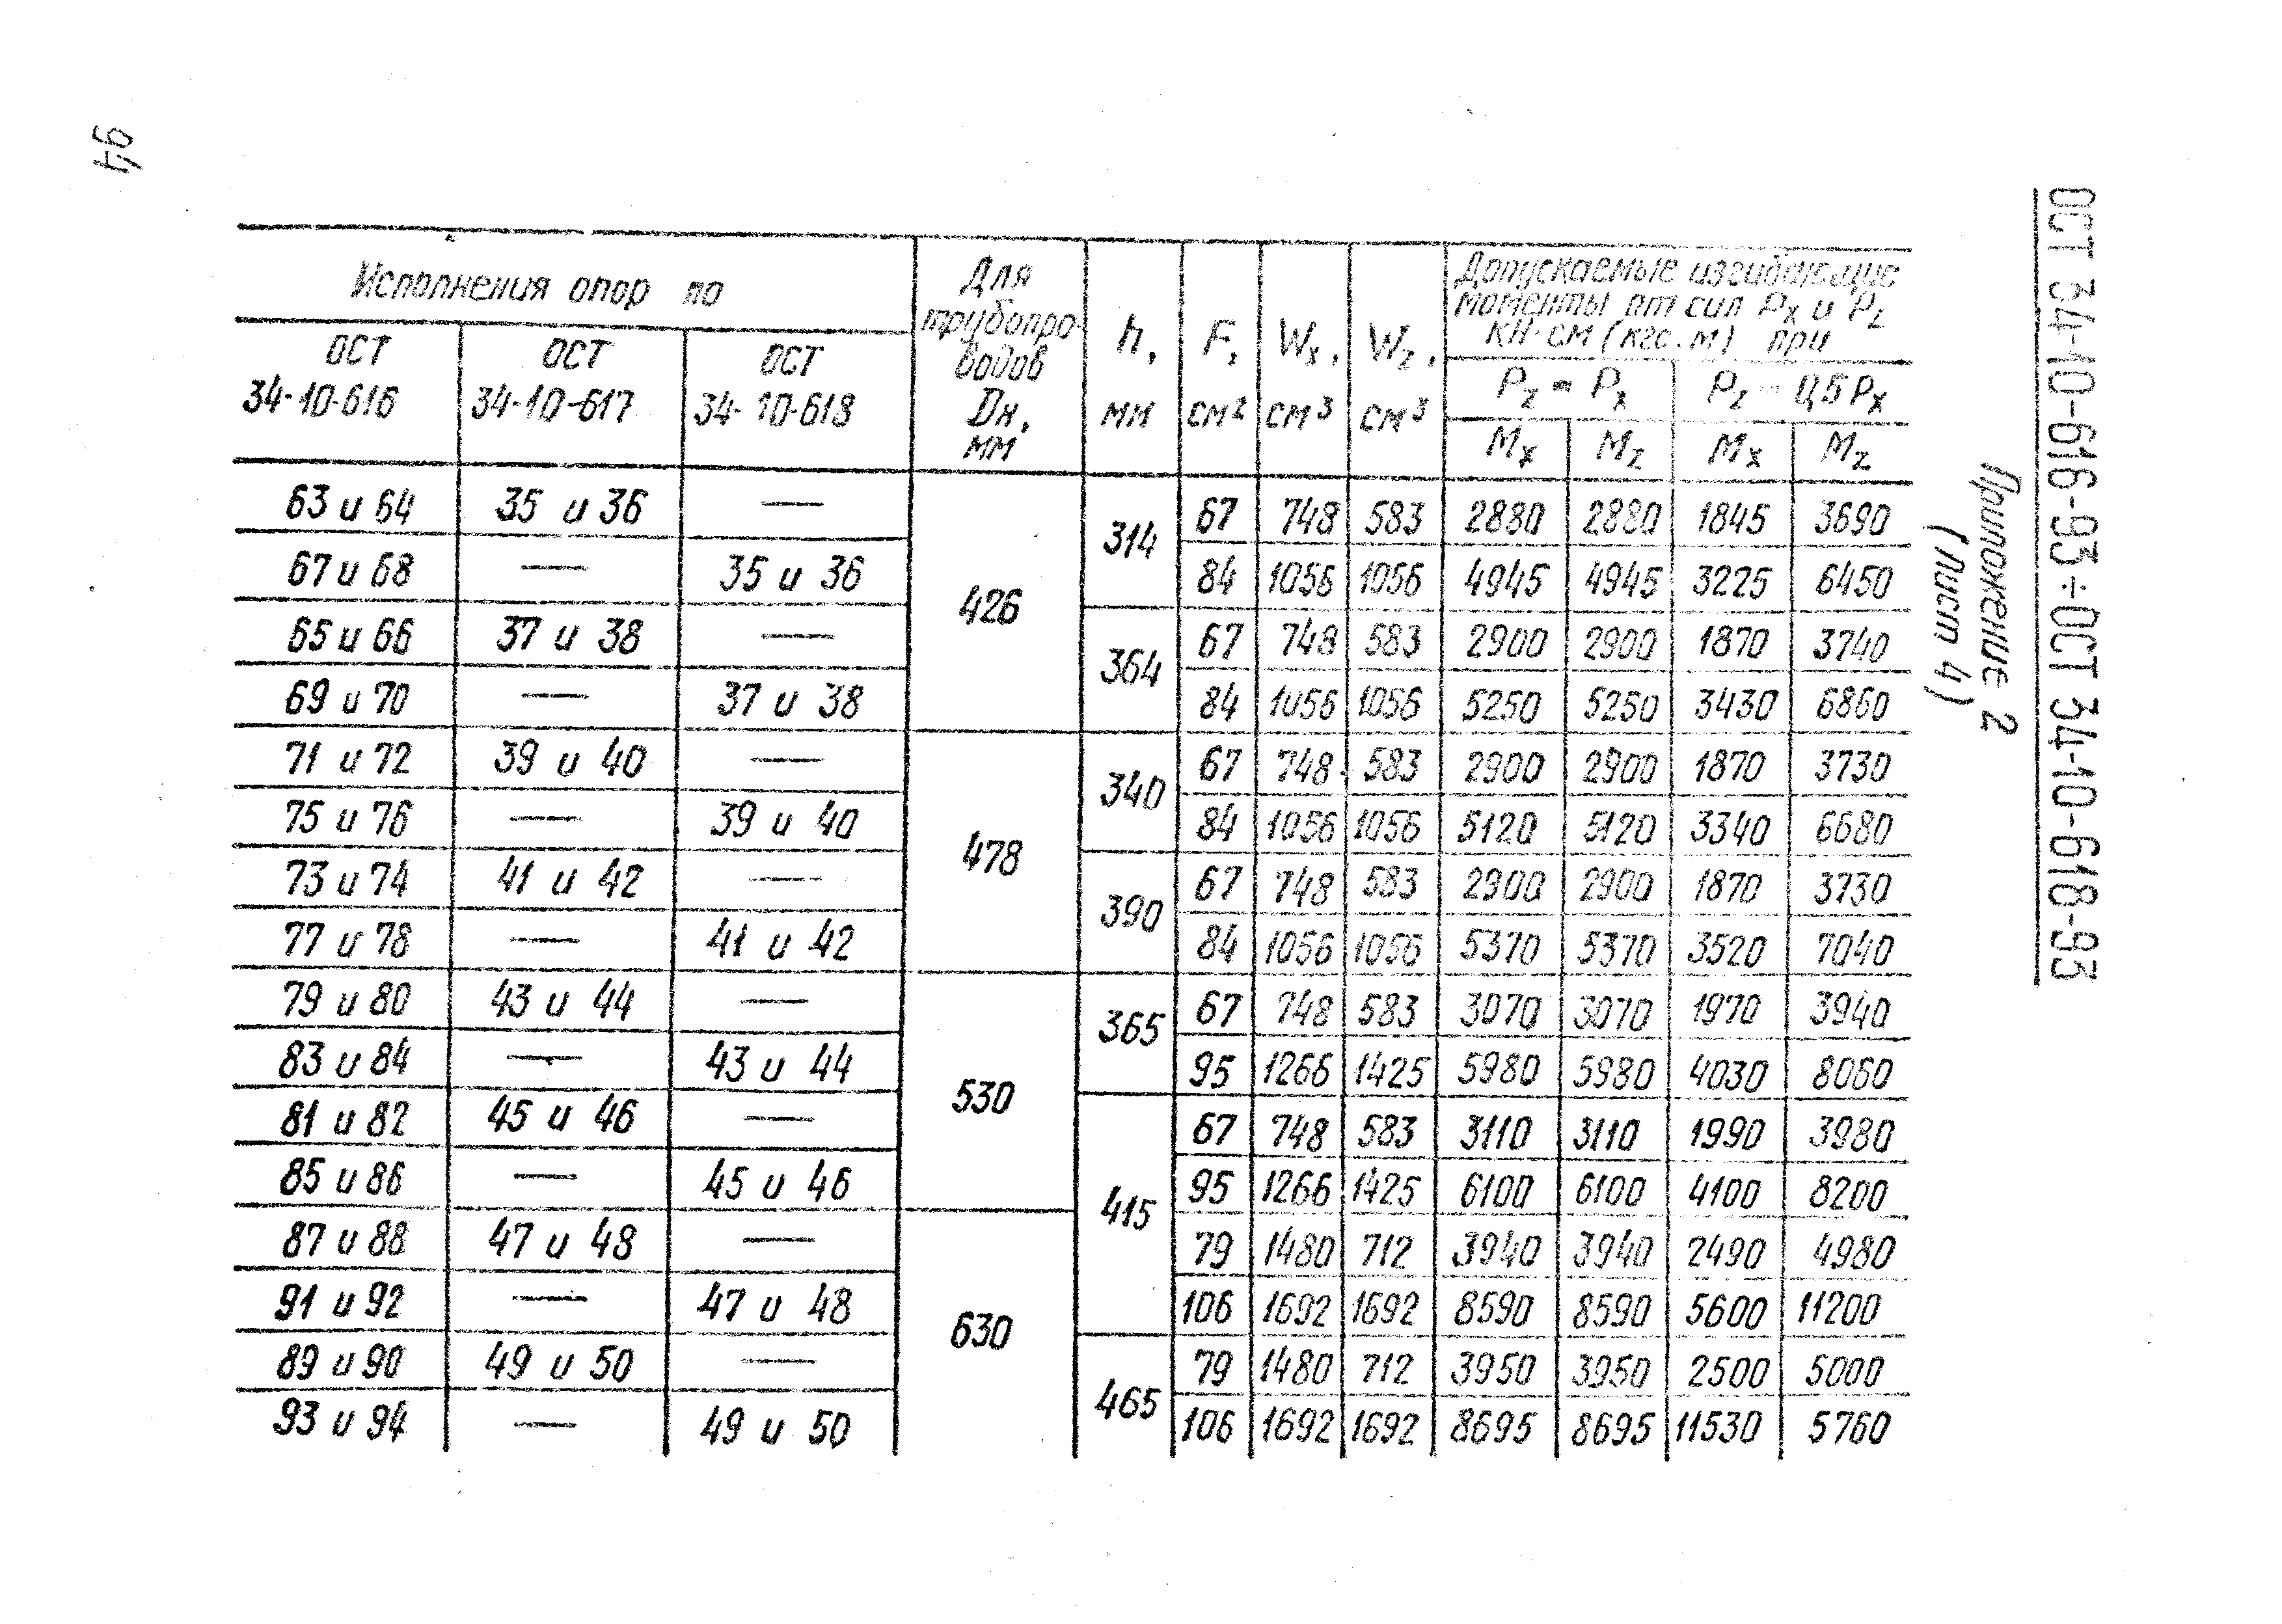 94
ОСТ 34-10-616-93÷ОСТ 34-10-618-93
Приложение 2
(Лист 4)
Исполнения опор по
ОСТ 34-10-616
ОСТ 34-10-617
ОСТ 34-10-618
Для
трубопро-
водов
Dн,
мм
h,
мм
F,
см²
Wx,
см³
Wz,
см³
Допускаемые изгибающие
моменты от сил Px и Pz
кН·см (кгс.м) при
Pz = Px
Pz = 0,5 Px
Mx Mz Mx Mz
63 и 64 35 и 36 — 426 314 67 748 583 2880 2880 1845 3690
67 и 68 — 35 и 36 84 1056 1056 4945 4945 3225 6450
65 и 66 37 и 38 — 364 67 748 583 2900 2900 1870 3740
69 и 70 — 37 и 38 84 1056 1056 5250 5250 3430 6860
71 и 72 39 и 40 — 478 340 67 748 583 2900 2900 1870 3730
75 и 76 — 39 и 40 84 1056 1056 5120 5120 3340 6680
73 и 74 41 и 42 — 390 67 748 583 2900 2900 1870 3730
77 и 78 — 41 и 42 84 1056 1056 5370 5370 3520 7040
79 и 80 43 и 44 — 530 365 67 748 583 3070 3070 1970 3940
83 и 84 — 43 и 44 95 1266 1425 5980 5980 4030 8060
81 и 82 45 и 46 — 415 67 748 583 3110 3110 1990 3980
85 и 86 — 45 и 46 95 1266 1425 6100 6100 4100 8200
87 и 88 47 и 48 — 630 79 1480 712 3940 3940 2490 4980
91 и 92 — 47 и 48 106 1692 1692 8590 8590 5600 11200
89 и 90 49 и 50 — 465 79 1480 712 3950 3950 2500 5000
93 и 94 — 49 и 50 106 1692 1692 8695 8695 11530 5760